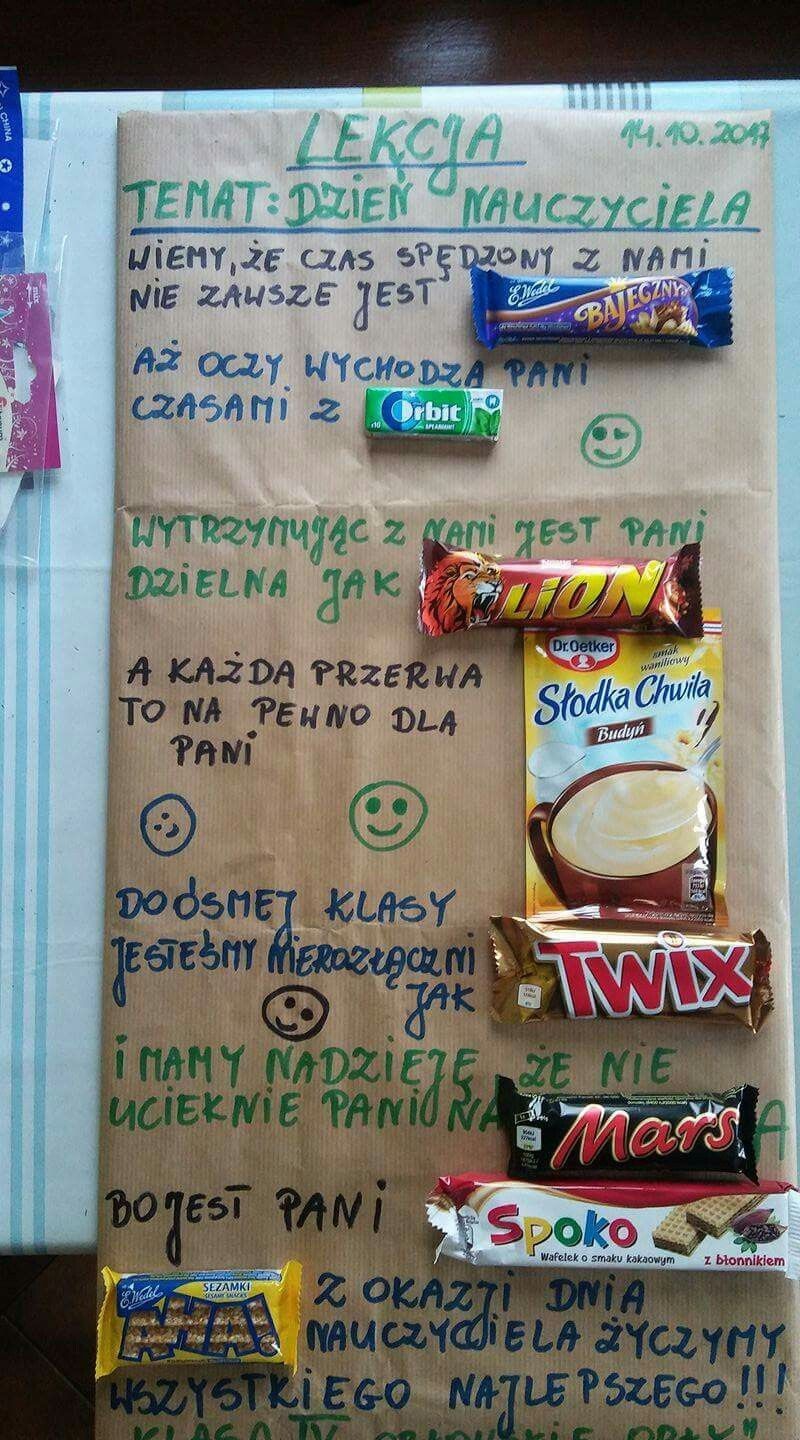 LEKCJA 14.10.2017
TEMAT: DZIEŃ NAUCZYCIELA
WIEMY, ŻE CZAS SPĘDZONY Z NAMI
NIE ZAWSZE JEST
E. Wedel BAJECZNY
AŻ OCZY WYCHODZĄ PANI
CZASAMI Z
Orbit
SPEARMINT
WYTRZYMUJĄC Z NAMI JEST PANI
DZIELNA JAK
LION
A KAŻDA PRZERWA
TO NA PEWNO DLA
PANI
Dr. Oetker
smak
waniliowy
Słodka Chwila
Budyń
DO ÓSMEJ KLASY
JESTEŚMY NIEROZŁĄCZNI
JAK
Twix
I MAMY NADZIEJĘ, ŻE NIE
UCIEKNIE PANI NA
Mars
A
BO JEST PANI
Spoko
Wafelek o smaku kakaowym
z błonnikiem
E. Wedel SEZAMKI
SESAME SNACKS
AHA!
Z OKAZJI DNIA
NAUCZYCIELA ŻYCZYMY
WSZYSTKIEGO NAJLEPSZEGO!!!
KLASA IV
CHINA